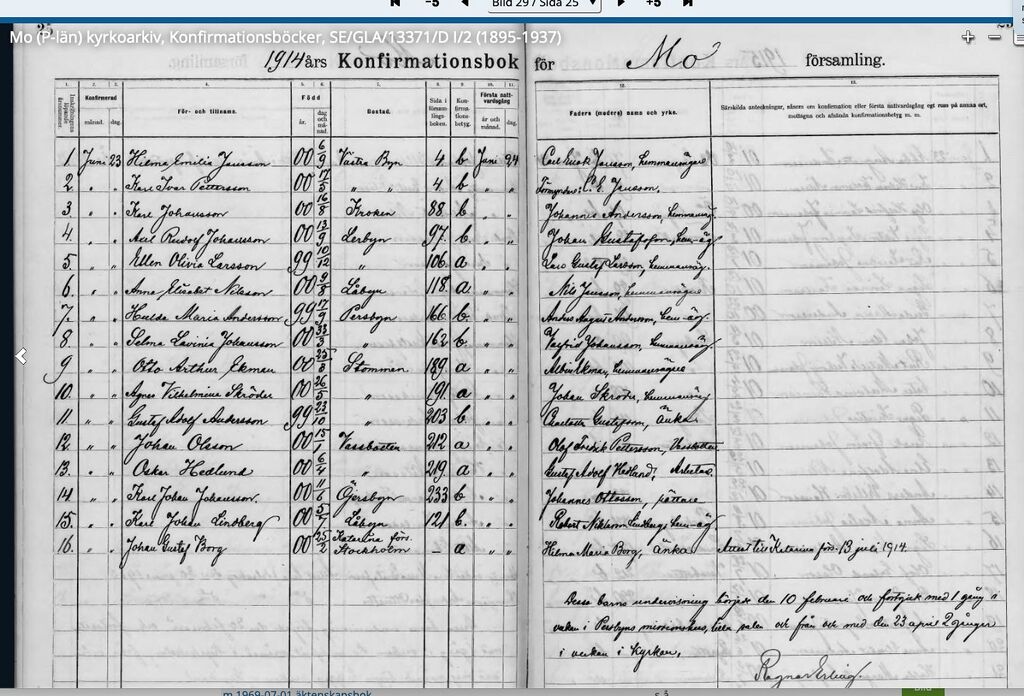 -5 Bild 29 / Sida 25 +5
Mo (P-län) kyrkoarkiv, Konfirmationsböcker, SE/GLA/13371/D I/2 (1895-1937)
1914 års Konfirmationsbok för Mo församling.
1. 2. 3. 4. 5. 6. 7. 8. 9. 10. 11. 12. 13.
Konfirmerad månad. dag. För- och tillnamn. Född år. dag och månad. Bostad. Sida i församlingsboken. Konfirmationsbetyg. Första nattvardsgång år och månad. dag. Faders (moders) namn och yrke. Särskilda anteckningar, såsom om konfirmation eller första nattvardsgång egt rum på annan ort, mottagna och afsända konfirmationsbetyg m. m.
1 Juni 23 Hilma Emilia Jansson 00 6/9 Västra Byn 4 b Juni 24 Carl Jansson, hemmansägare
2. " " Karl Ivar Pettersson 00 17/5 " " 4 b " " Förmyndare: C. E. Jansson.
3. " " Karl Johansson 00 16/8 Kroken 88. b " " Johannes Andersson, hemmansäg.
4. " " Axel Rudolf Johansson 00 13/9 Lerbyn 97. b. " " Johan Gustafsson, hem-äg
5. " " Ellen Olivia Larsson 99 10/12 " 106. a " " Lars Gustaf Larsson, hemmansäg.
6. " " Anna Elisabet Nilsson 00 9/8 Låbyn 118. a " " Nils Jansson, hemmansägare
7. " " Hulda Maria Andersson 99 17/9 Persbyn 166 b " " Anders August Andersson, hem-äg.
8. " " Selma Lavinia Johansson 00 " 162 b. " " Johansson, hemmansäg.
9 " " Otto Arthur Ekman 00 25/8 Stommen 189. a " " Albin Ekman, hemmansägare
10. " " Agnes Vilhelmina Skröder 00 26/5 " 191. a " " Johan Skröder, hemmansäg
11 " " Gustaf Adolf Andersson 99 23/10 " 203 b " " Gustafsson, änka
12 " " Johan Olsson 00 15/1 Vassbotten 212 a " " Olof Fredrik Pettersson, Vassbotten
13. " " Oskar Hedlund 00 6/4 " 219. a " " Gustaf Adolf Hedlund,
14 " " Karl Johan Johansson. 00 11/6 Gersbyn 233 b " " Johannes Ottosson, rättare
15. " " Karl Johan Lindberg 00 5/7 Låbyn 121 b. " " Robert Lindberg, hem-äg
16. " " Johan Gustaf Borg 00 25/2 Katarina förs. Stockholm – a " " Hilma Maria Borg, änka Attest till Katarina förs. 13 juli 1914.
Dessa barns undervisning började den 10 februari och fortgick med 1 gång i
veckan i Persbyns missionshus, lilla salen och från och med den 23 april 2 gånger
i veckan i Kyrkan.
Ragnar Erling.
m 1969-07-01 äktenskapsbok